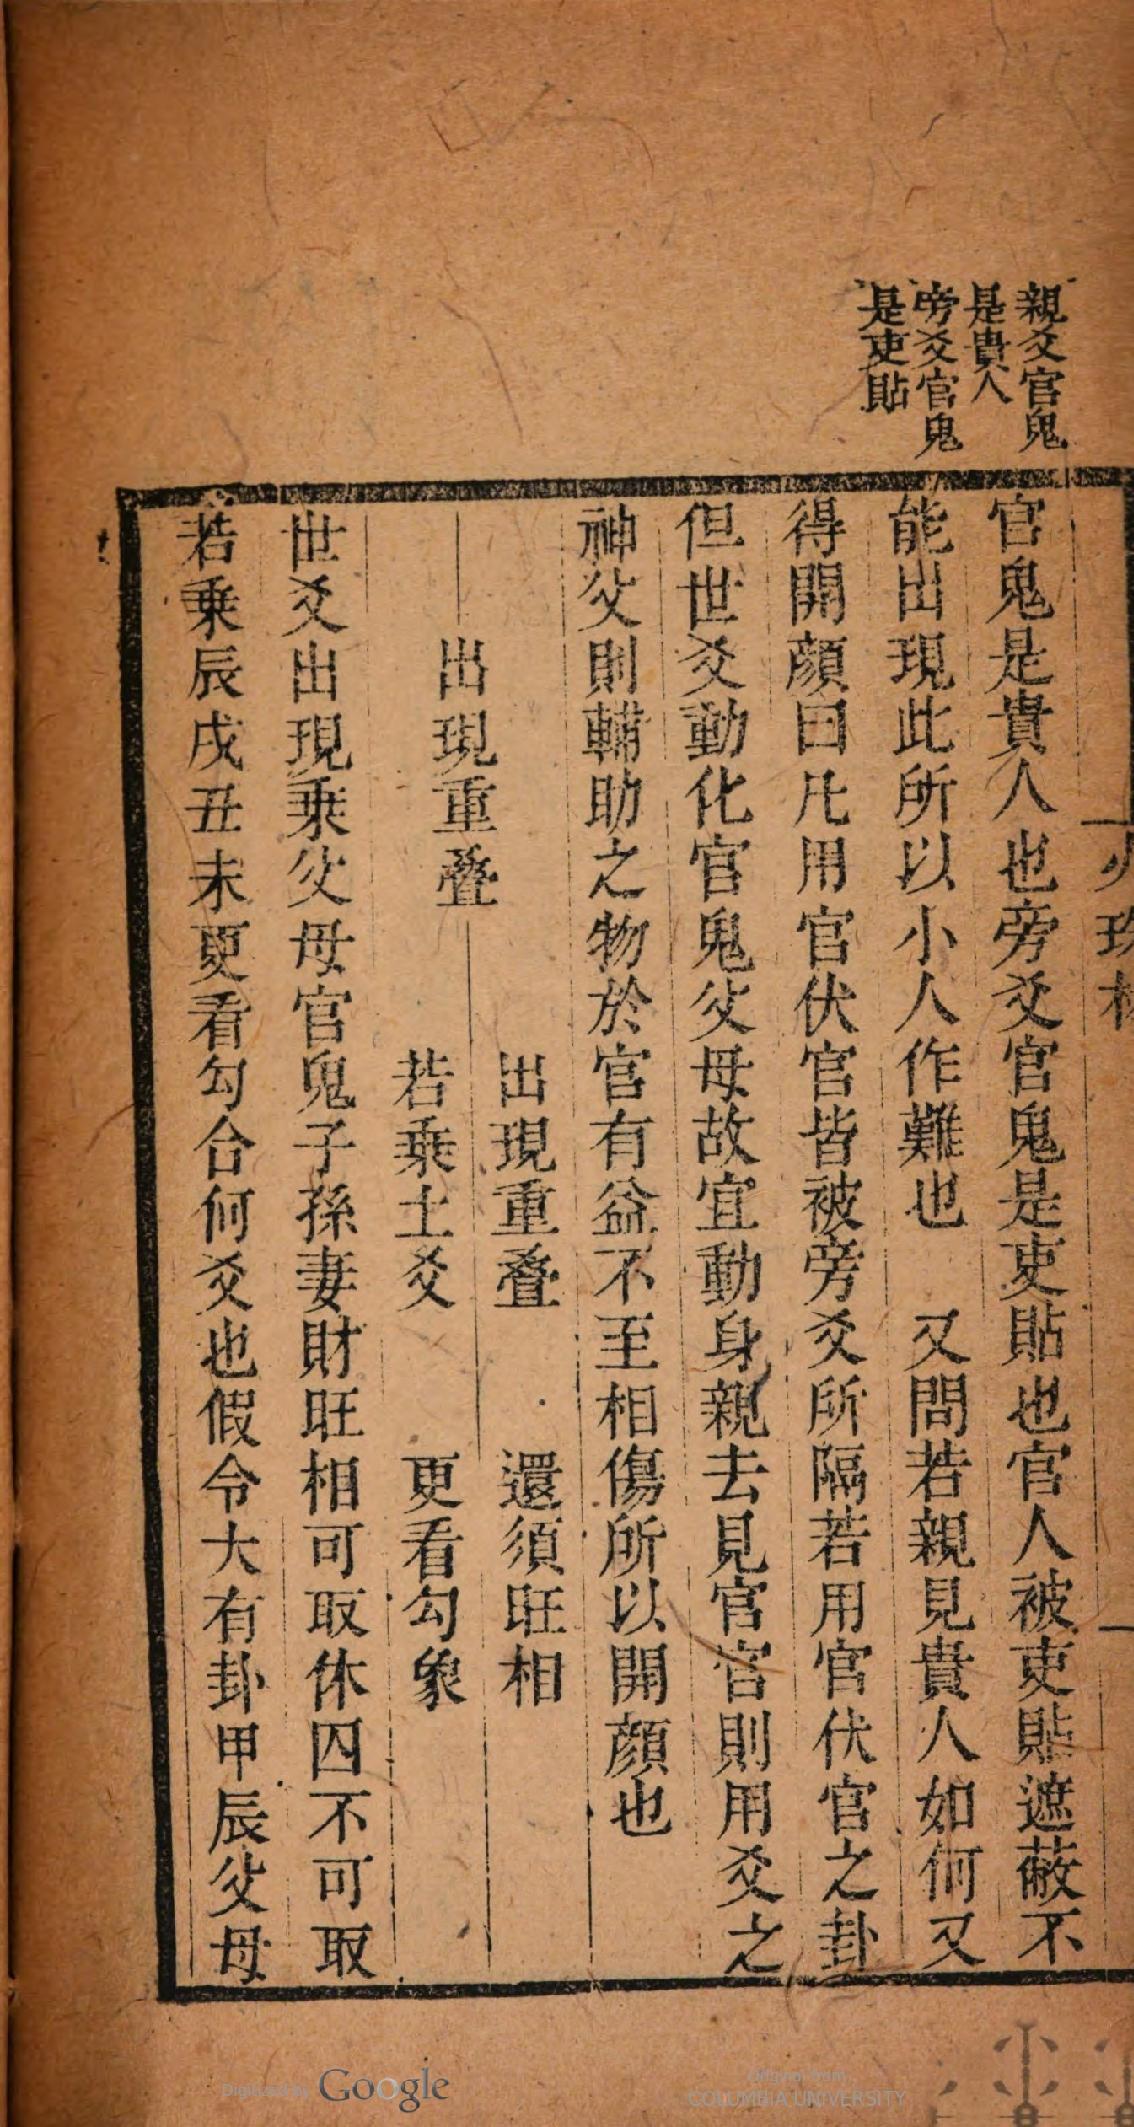 親爻官鬼
是貴人
旁爻官鬼
是吏貼
火珠林
官鬼是貴人也旁爻官鬼是吏貼也官人被吏貼遮蔽不
能出現此所以小人作難也　又問若親見貴人如何又
得開顔曰凡用官伏官皆被旁爻所隔若用官伏官之卦
但世爻動化官鬼父母故宜動身親去見官官則用爻之
神父則輔助之物於官有益不至相傷所以開顔也
出現重疊
出現重疊　還須旺相
若乗土爻　更看勾象
世爻出現乗父母官鬼子孫妻財旺相可取休囚不可取
若乗辰戌丑未更看勾合何爻也假令大有卦甲辰父母
Digitized by Google
Original from
COLUMBIA UNIVERSITY